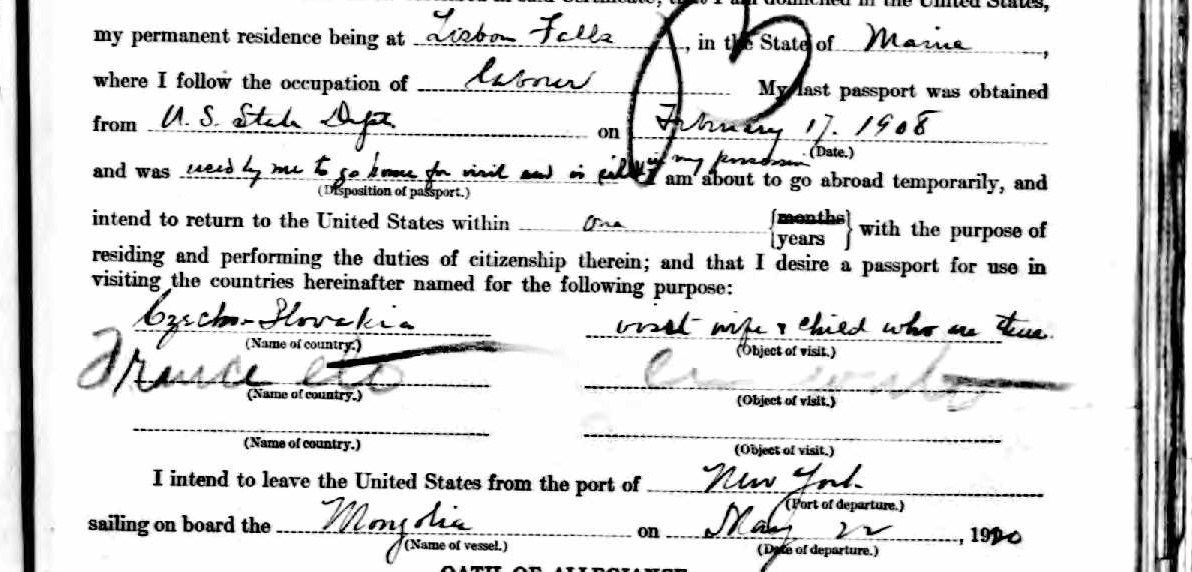 domiciled in the United States,
my permanent residence being at Lisbon Falls, in the State of Maine,
where I follow the occupation of labourer My last passport was obtained
from U. S. State Dept on February 17. 1908
(Date.)
and was used by me to go home for visit and is in my possession I am about to go abroad temporarily, and
(Disposition of passport.)
intend to return to the United States within one {months} {years} with the purpose of
residing and performing the duties of citizenship therein; and that I desire a passport for use in
visiting the countries hereinafter named for the following purpose:
Czecho-Slovakia visit wife & child who are there.
(Name of country.) (Object of visit.)
France
(Name of country.) (Object of visit.)
(Name of country.) (Object of visit.)
I intend to leave the United States from the port of New York
(Port of departure.)
sailing on board the Mongolia on May 22, 1920
(Name of vessel.) (Date of departure.)
OATH OF ALLEGIANCE